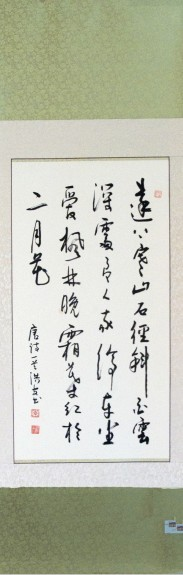 遠上寒山石徑斜白雲
深處有人家停車坐
愛楓林晚霜葉紅於
二月花
唐詩一首洪友書